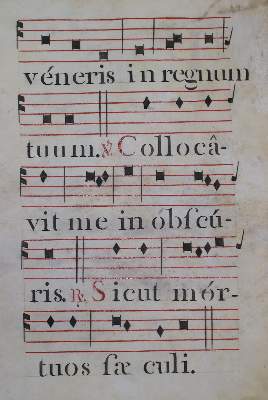 véneris in regnum
tuum. ℣ Collocâ-
vit me in óbſcú-
ris. ℟. Sicut mór-
tuos ſæ culi.